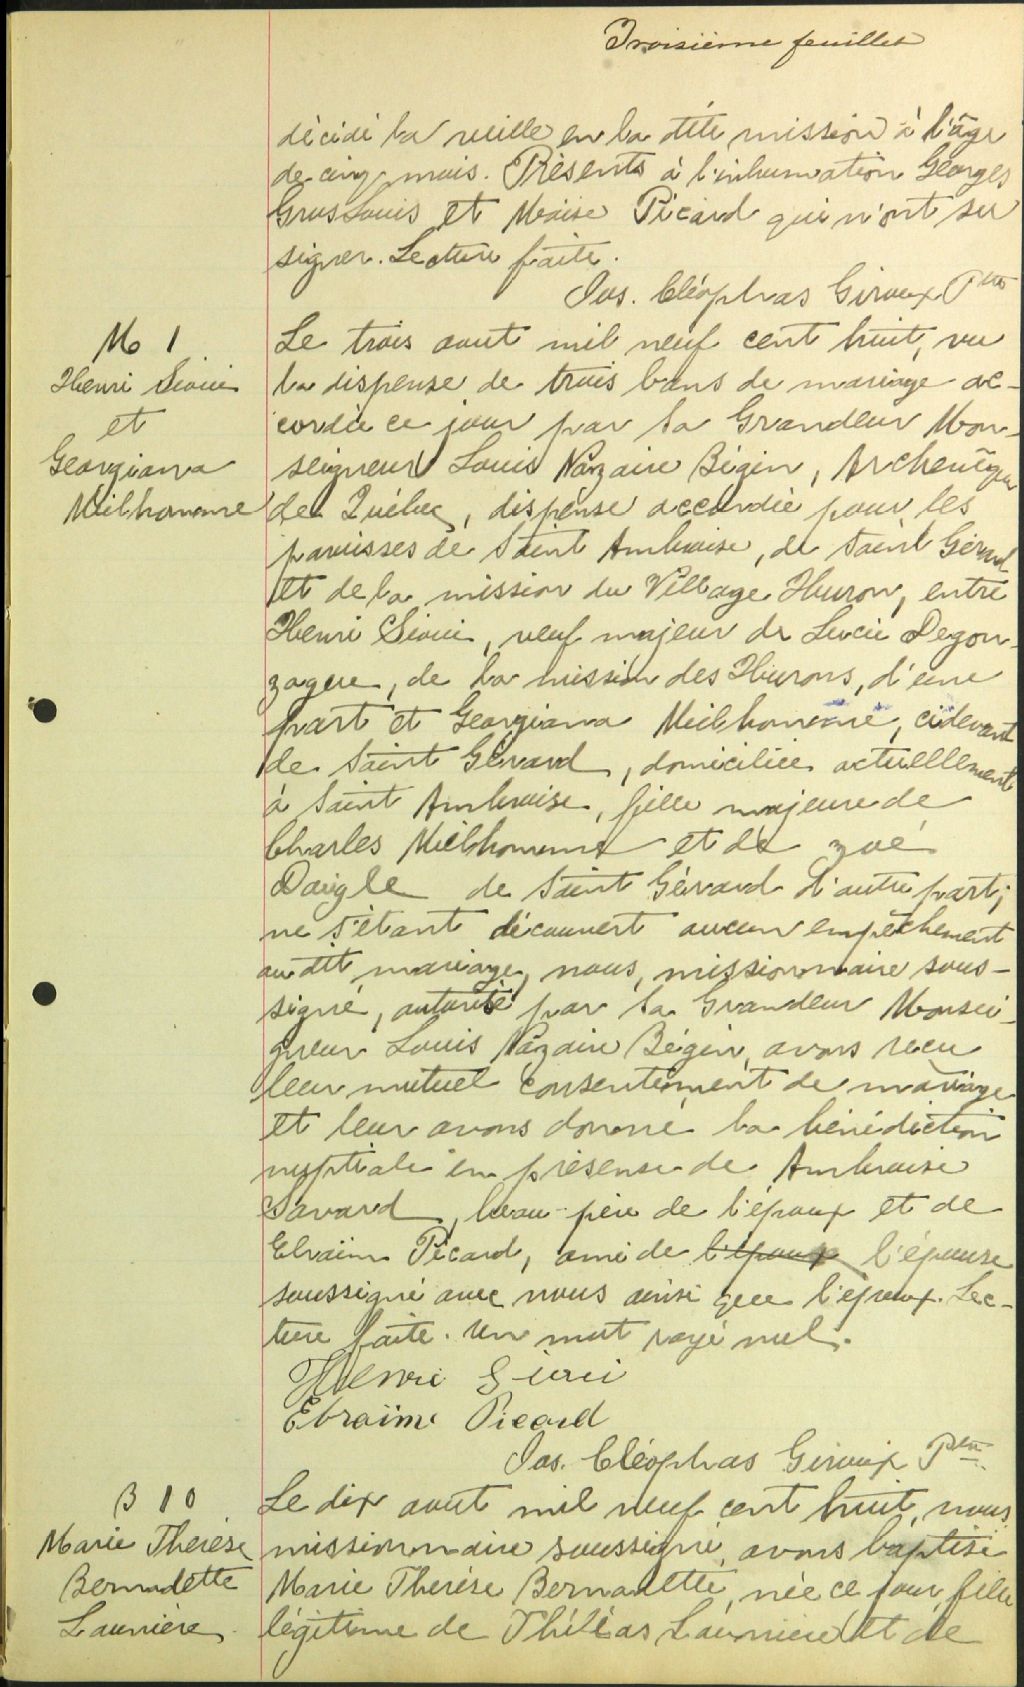 Troisième feuillet
décédé la veille en la dite mission à l'âge
de cinq mois. Présents à l'inhumation Georges
GrosLouis et Moïse Picard qui n'ont su
signer. Lecture faite.
Jos. Cléophas Giroux Ptre
M 1
Henri Sioui
et
Georgiana
Milhomme
Le trois aout mil neuf cent huit, vu
la dispense de trois bans de mariage ac-
cordée ce jour par Sa Grandeur Mon-
seigneur Louis Nazaire Bégin, Archevêque
de Québec, dispense accordée pour les
paroisses de Saint Ambroise, de Saint Gérard
et de la mission du Village Huron, entre
Henri Sioui, veuf majeur de Lucie Degon-
zague, de la mission des Hurons, d'une
part et Georgiana Milhomme, cidevant
de Saint Gérard, domiciliée actuellement
à Saint Ambroise, fille majeure de
Charles Milhomme et de Zoé
Daigle de Saint Gérard d'autre part;
ne s'étant découvert aucun empêchement
au dit mariage, nous, missionnaire sous-
signé, autorisé par Sa Grandeur Monsei-
gneur Louis Nazaire Bégin, avons reçu
leur mutuel consentement de mariage
et leur avons donné la bénédiction
nuptiale en présense de Ambroise
Savard, beau-père de l'époux et de
Ebraïm Picard, ami de l'époux l'épouse
soussigné avec nous ainsi que l'époux. Lec-
ture faite. Un mot rayé nul.
Henri Sioui
Ebraïm Picard
Jos. Cléophas Giroux Ptre
B 10
Marie Thérèse
Bernadette
Launière
Le dix aout mil neuf cent huit, nous
missionnaire soussigné, avons baptisé
Marie Thérèse Bernadette, née ce jour, fille
légitime de Théleas Launière et de